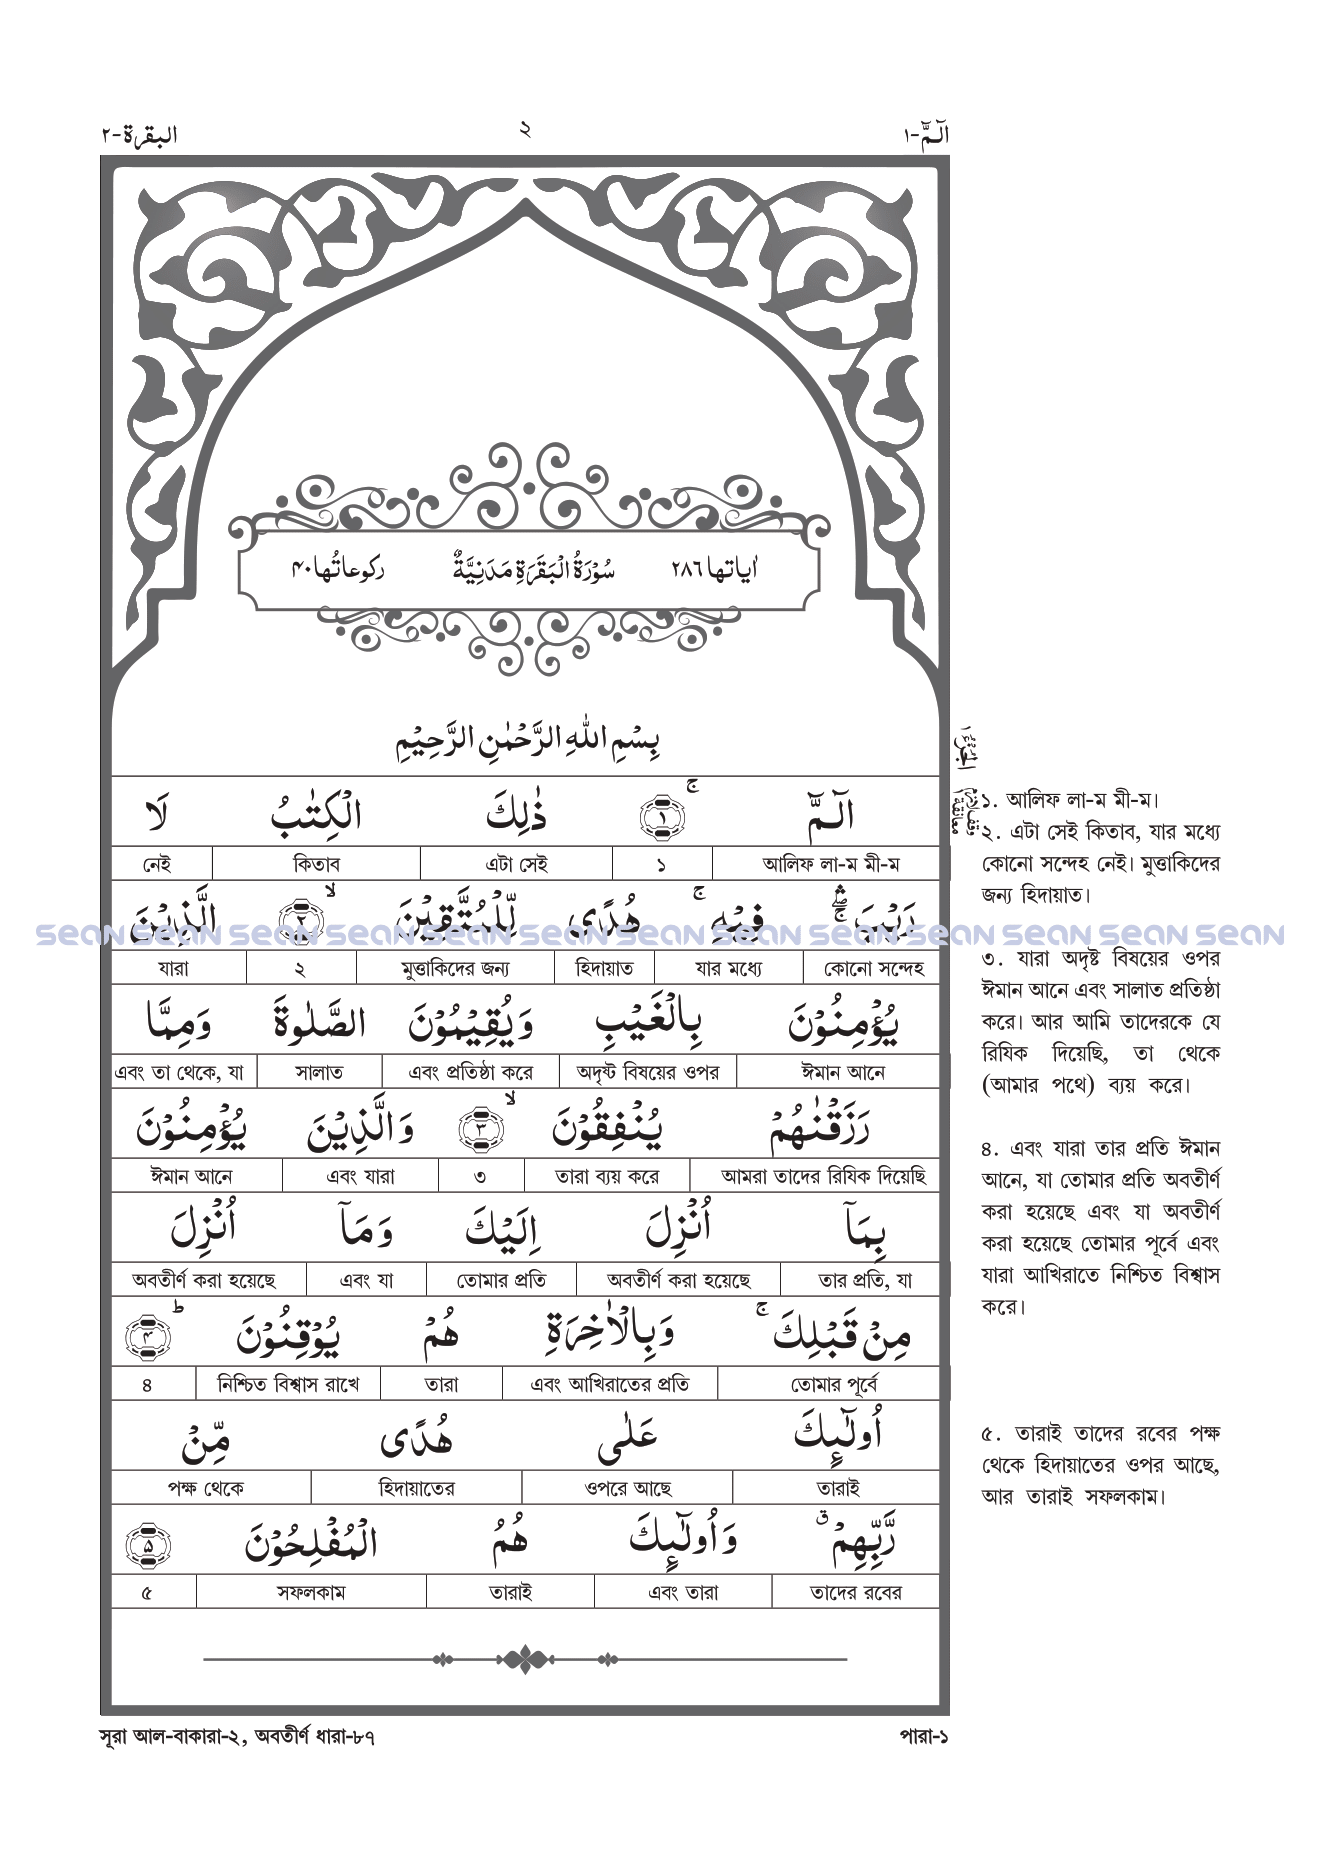 البقرة-٢
২
الٓمّٓ-١
اٰیاتها ٢٨٦ سُوْرَةُ الْبَقَرَةِ مَدَنِیَّةٌ رکوعاتُها ۴٠
بِسْمِ اللّٰهِ الرَّحْمٰنِ الرَّحِیْمِ
الٓمّٓ ۚ ١ ذٰلِكَ الْکِتٰبُ لَا
আলিফ লা-ম মী-ম ১ এটা সেই কিতাব নেই
رَیْبَ ۛۚ فِیْهِ ۚ هُدًی لِّلْمُتَّقِیْنَ ۙ ٢ الَّذِیْنَ
কোনো সন্দেহ যার মধ্যে হিদায়াত মুত্তাকিদের জন্য ২ যারা
یُؤْمِنُوْنَ بِالْغَیْبِ وَیُقِیْمُوْنَ الصَّلٰوةَ وَمِمَّا
ঈমান আনে অদৃষ্ট বিষয়ের ওপর এবং প্রতিষ্ঠা করে সালাত এবং তা থেকে, যা
رَزَقْنٰهُمْ یُنْفِقُوْنَ ۙ ٣ وَالَّذِیْنَ یُؤْمِنُوْنَ
আমরা তাদের রিযিক দিয়েছি তারা ব্যয় করে ৩ এবং যারা ঈমান আনে
بِمَاۤ اُنْزِلَ اِلَیْكَ وَمَاۤ اُنْزِلَ
তার প্রতি, যা অবতীর্ণ করা হয়েছে তোমার প্রতি এবং যা অবতীর্ণ করা হয়েছে
مِنْ قَبْلِكَ ۚ وَبِالْاٰخِرَةِ هُمْ یُوْقِنُوْنَ ؕ ۴
তোমার পূর্বে এবং আখিরাতের প্রতি তারা নিশ্চিত বিশ্বাস রাখে ৪
اُولٰٓئِكَ عَلٰی هُدًی مِّنْ
তারাই ওপরে আছে হিদায়াতের পক্ষ থেকে
رَّبِّهِمْ ۗ وَاُولٰٓئِكَ هُمُ الْمُفْلِحُوْنَ ۵
তাদের রবের এবং তারা তারাই সফলকাম ৫
১. আলিফ লা-ম মী-ম।
২. এটা সেই কিতাব, যার মধ্যে
কোনো সন্দেহ নেই। মুত্তাকিদের
জন্য হিদায়াত।
৩. যারা অদৃষ্ট বিষয়ের ওপর
ঈমান আনে এবং সালাত প্রতিষ্ঠা
করে। আর আমি তাদেরকে যে
রিযিক দিয়েছি, তা থেকে
(আমার পথে) ব্যয় করে।
৪. এবং যারা তার প্রতি ঈমান
আনে, যা তোমার প্রতি অবতীর্ণ
করা হয়েছে এবং যা অবতীর্ণ
করা হয়েছে তোমার পূর্বে এবং
যারা আখিরাতে নিশ্চিত বিশ্বাস
করে।
৫. তারাই তাদের রবের পক্ষ
থেকে হিদায়াতের ওপর আছে,
আর তারাই সফলকাম।
الجزء ١
sean sean sean sean sean sean sean sean sean sean sean sean sean
সূরা আল-বাকারা-২, অবতীর্ণ ধারা-৮৭
পারা-১